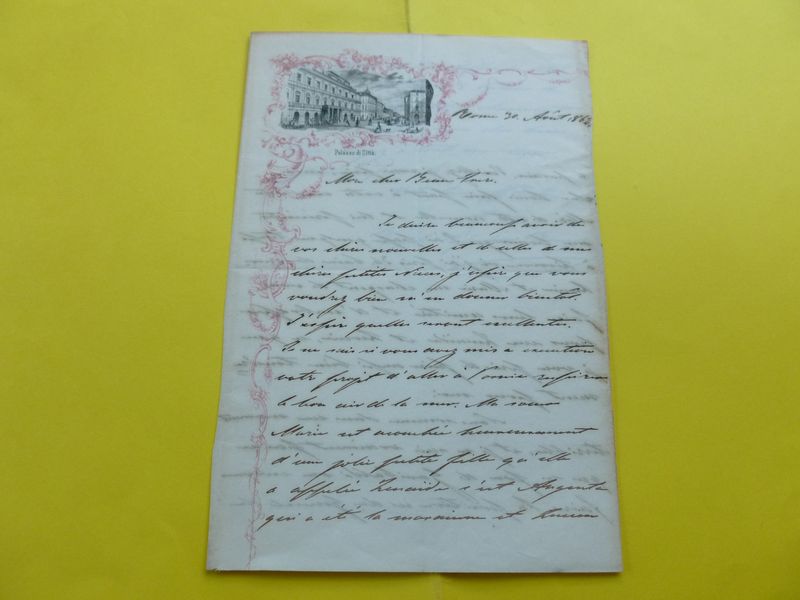 Palazzo di Città.
Rome 30. Août
Mon cher Beau
Je désire beaucoup avoir de
vos chères nouvelles et de celles de mes
chères petites Nièces, j'espère que vous
voudrez bien m'en donner bientôt.
J'espère quelles seront excellentes.
Je ne sais si vous avez mis a execution
votre projet d'aller à respirer
le bon air de la mer. Ma soeur
Marie est accouchée heureusement
d'une jolie petite fille qu'elle
a appellée Zenaide c'est Augusta
qui a été la marainne et Lucien